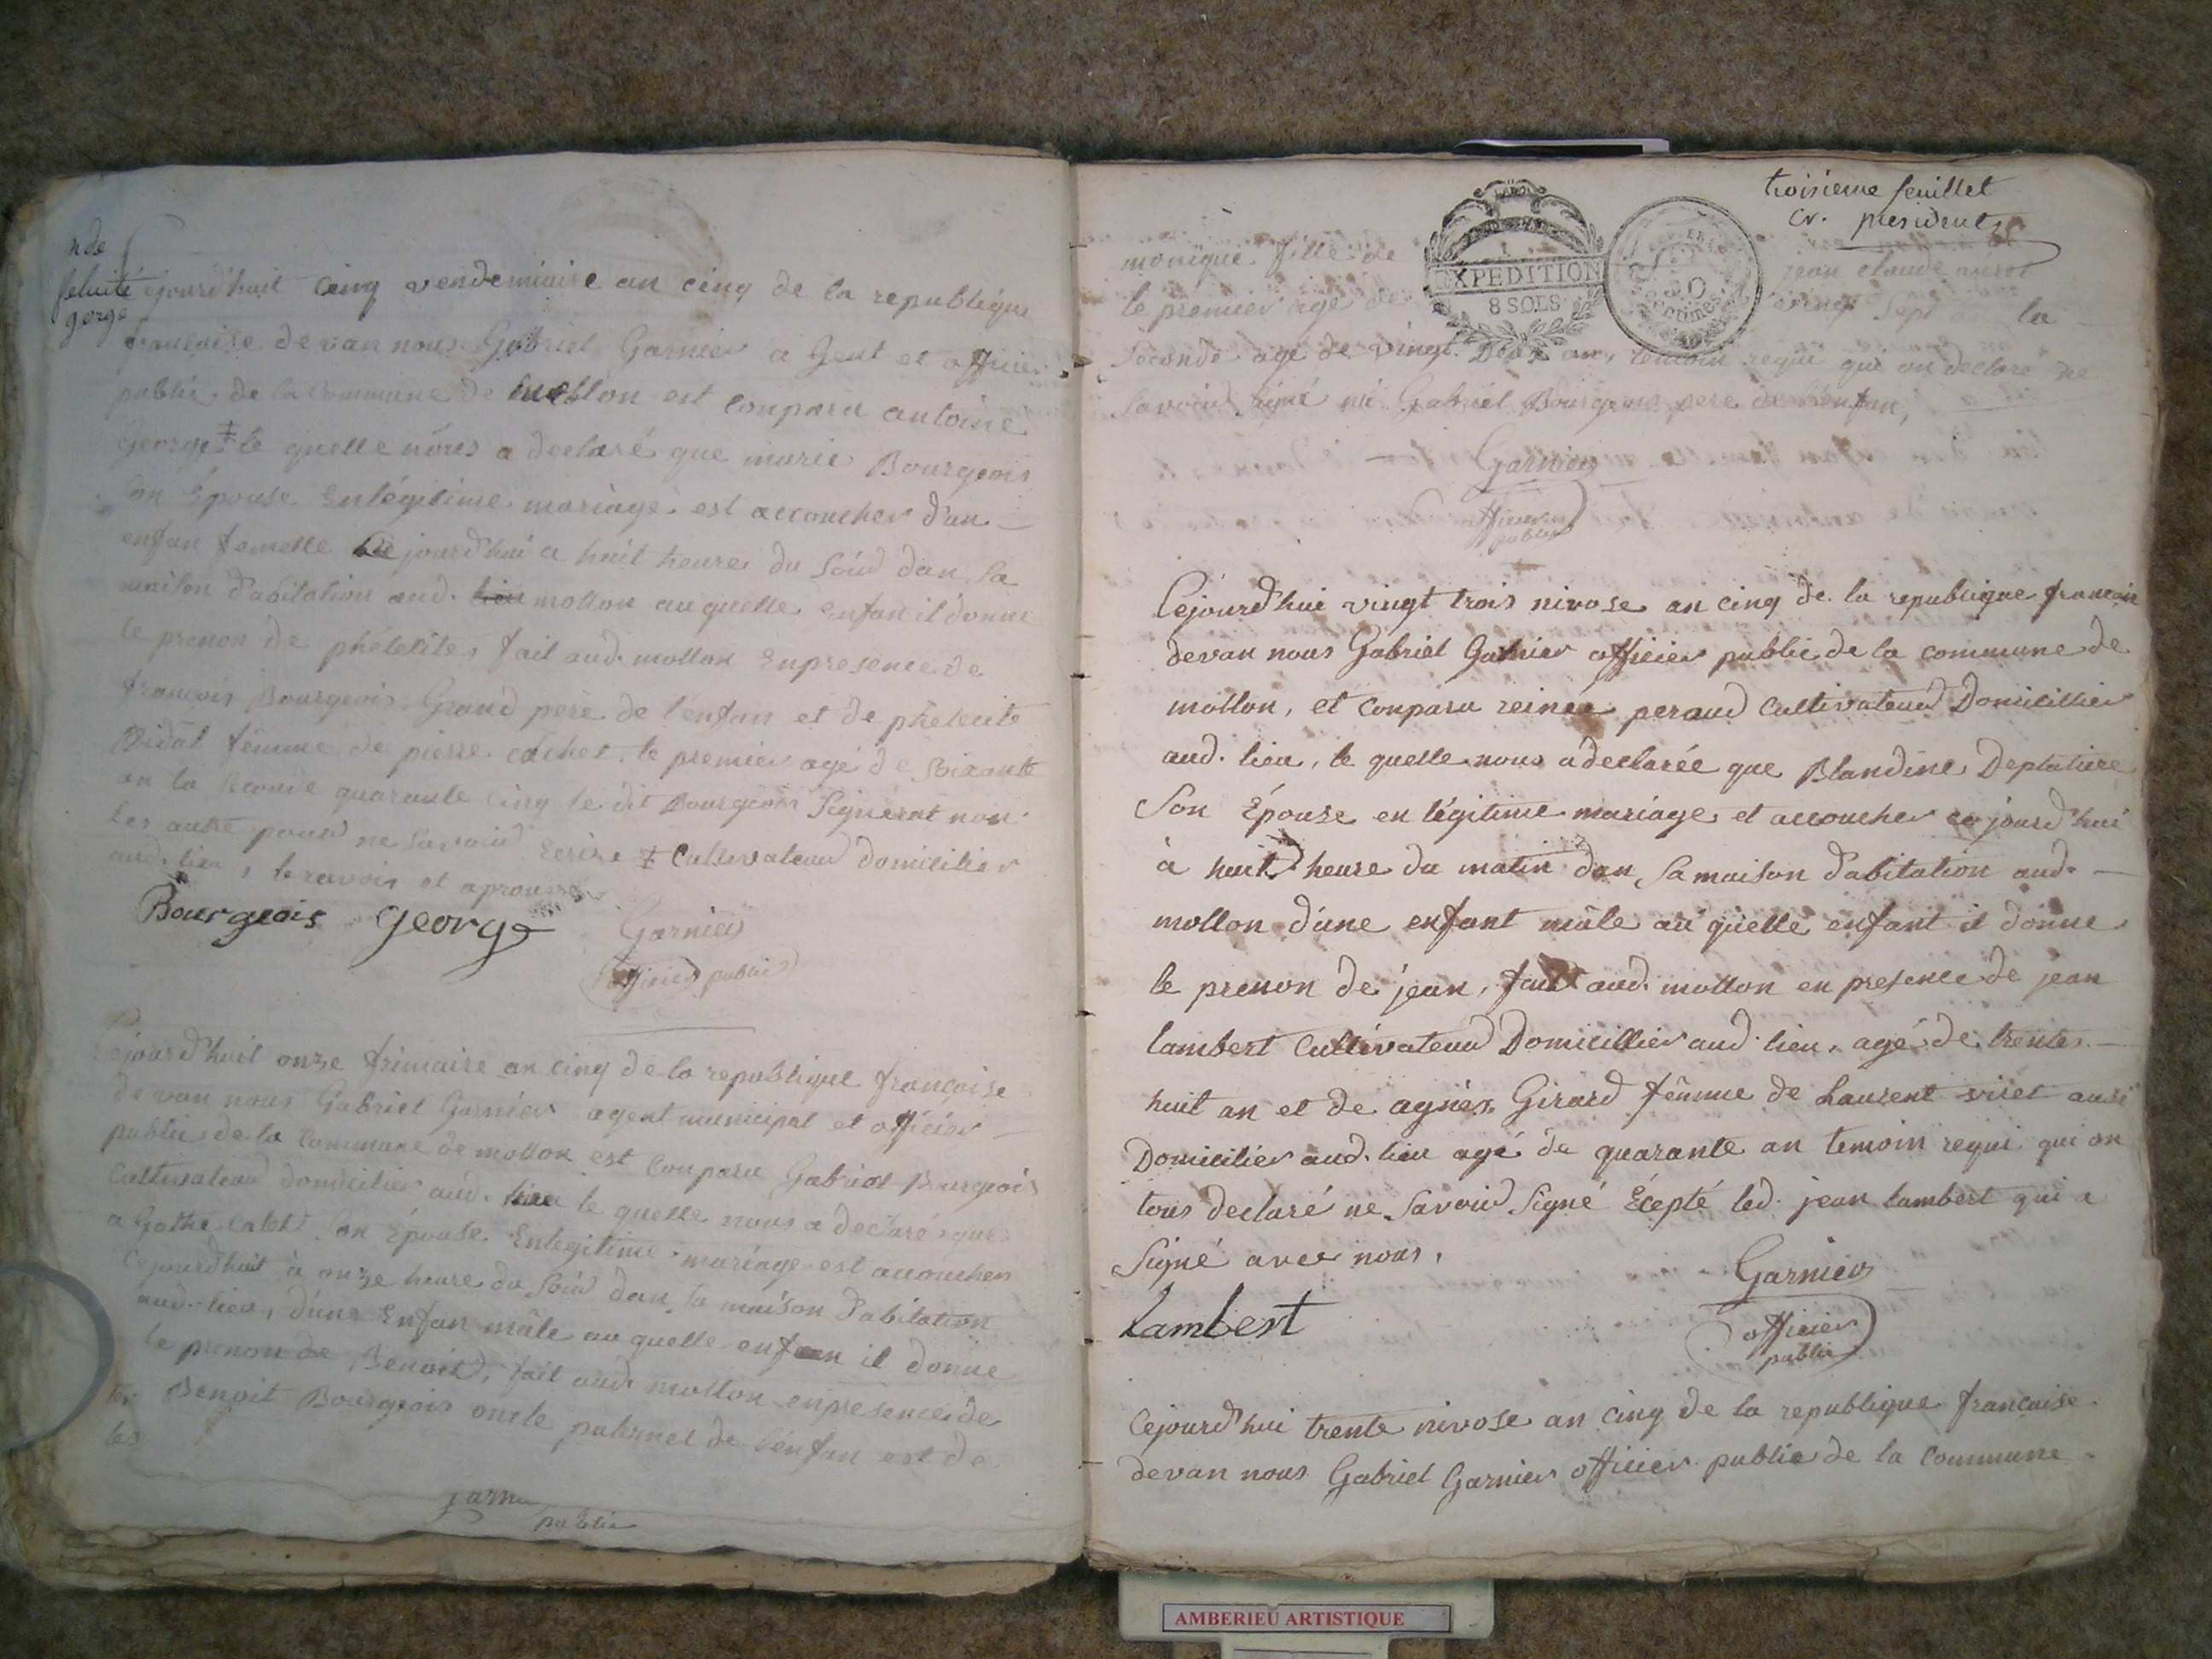 nde
felicité
george
Cejourd'huit cinq vendemiaire an cinq de la republique
francaise devan nous Gabriel Garnier a Gent et officier
public de la commune de mollon est conparu antoine
George ‡ le quelle nous a declaré que marie Bourgeois
son Épouse Enlégitime mariage est accoucher d'un
enfan femelle cejourd'hui a huit heures du soird dan sa
maison d'abitation aud. lieu mollon au quelle enfan il donne
le prenon de phélécite, fait aud. mollon Enpresence de
francois Bourgeois Grand pere de l'enfan et de phélécite
Bidal fêmme de pierre cochet, le premier agé de soixante
an la seconde quarante cinq le dit Bourgeois Signerat non
les autre pourd ne savoird Ecrire ‡ Cultivateurd domicilier
aud. lieu, le ravois et aprouvers
Bourgeois George Garnier
officier public
Cejourd'huit onze frimaire an cinq de la republique françoise
devan nous Gabriel Garnier agent municipal et officier
public de la commune de mollon est Conparu Gabriel Bourgeois
Cultivateurd domicilier aud. lieu le quelle nous a declaré que
a Gathe catet son Épouse Enlegitime mariage est accoucher
Cejourd'huit à onze heure du soird dan sa maison d'abitation
aud. lieu, d'une Enfan mâle au quelle enfan il donne
le prenon de Benoit, fait aud. mollon enpresence de
Benoit Bourgeois oncle paternel de l'énfan est de
les
public
troisieme feuillet
cr. president
monique fille de jean claude
EXPEDITION
8 SOLS
50
centimes
le premier agé de vingt sept an la
seconde age de vingt Deux an, temoin requi qui on declaré ne
savoird signé ni Gabriel Bourgeois pere de l'enfan,
Garnier
officier
public
Cejourd'hui vingt trois nivose an cinq de la republique francoise
devan nous Gabriel Garnier officier public de la commune de
mollon, et conparu reiné peraud Cultivateurd Domicillier
aud. lieu, le quelle nous a declarée que Blandine Deplatiere
Son Épouse en légitime mariage et accoucher cejourd'hui
à huit heure du matin dan sa maison d'abitation aud.
mollon d'une enfant mâle au quelle enfant il donne
le prenon de jean, fait aud. mollon en presence de jean
lambert Cultivateurd Domicillier aud. lieu, agé de trente
huit an et de agnés Girard fêmme de Laurent viret ausi
Domicilier aud. lieu agé de quarante an temoin requi qui on
tous declaré ne savoird signé Écepté led. jean lambert qui a
signé avec nous,
Lambert Garnier
officier
public
Cejourd'hui trente nivose an cinq de la republique francaise
devan nous Gabriel Garnier officier public de la commune
AMBERIEU ARTISTIQUE